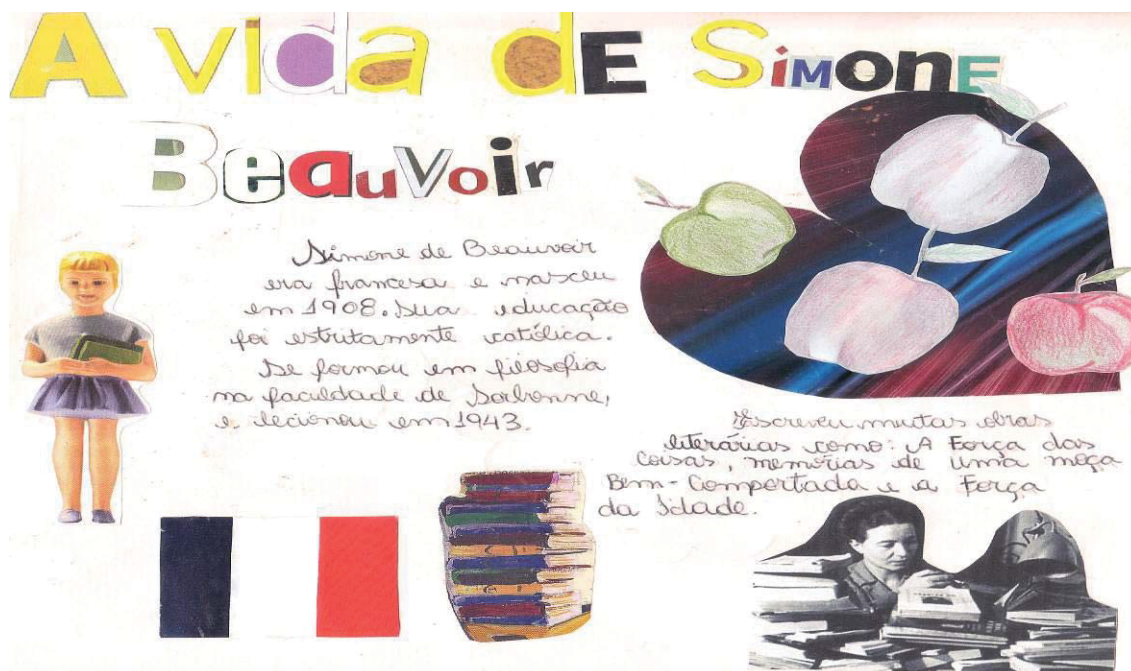 A vida dE SiMonE
BeauVoir
Simone de Beauvoir
era francesa e nasceu
em 1908. Sua educação
foi estritamente católica.
Se formou em filosofia
na faculdade de Sorbonne,
e lecionou em 1943.
Escreveu muitas obras
literárias como: A Força das
Coisas, memórias de uma moça
Bem-Comportada e a Força
da Idade.